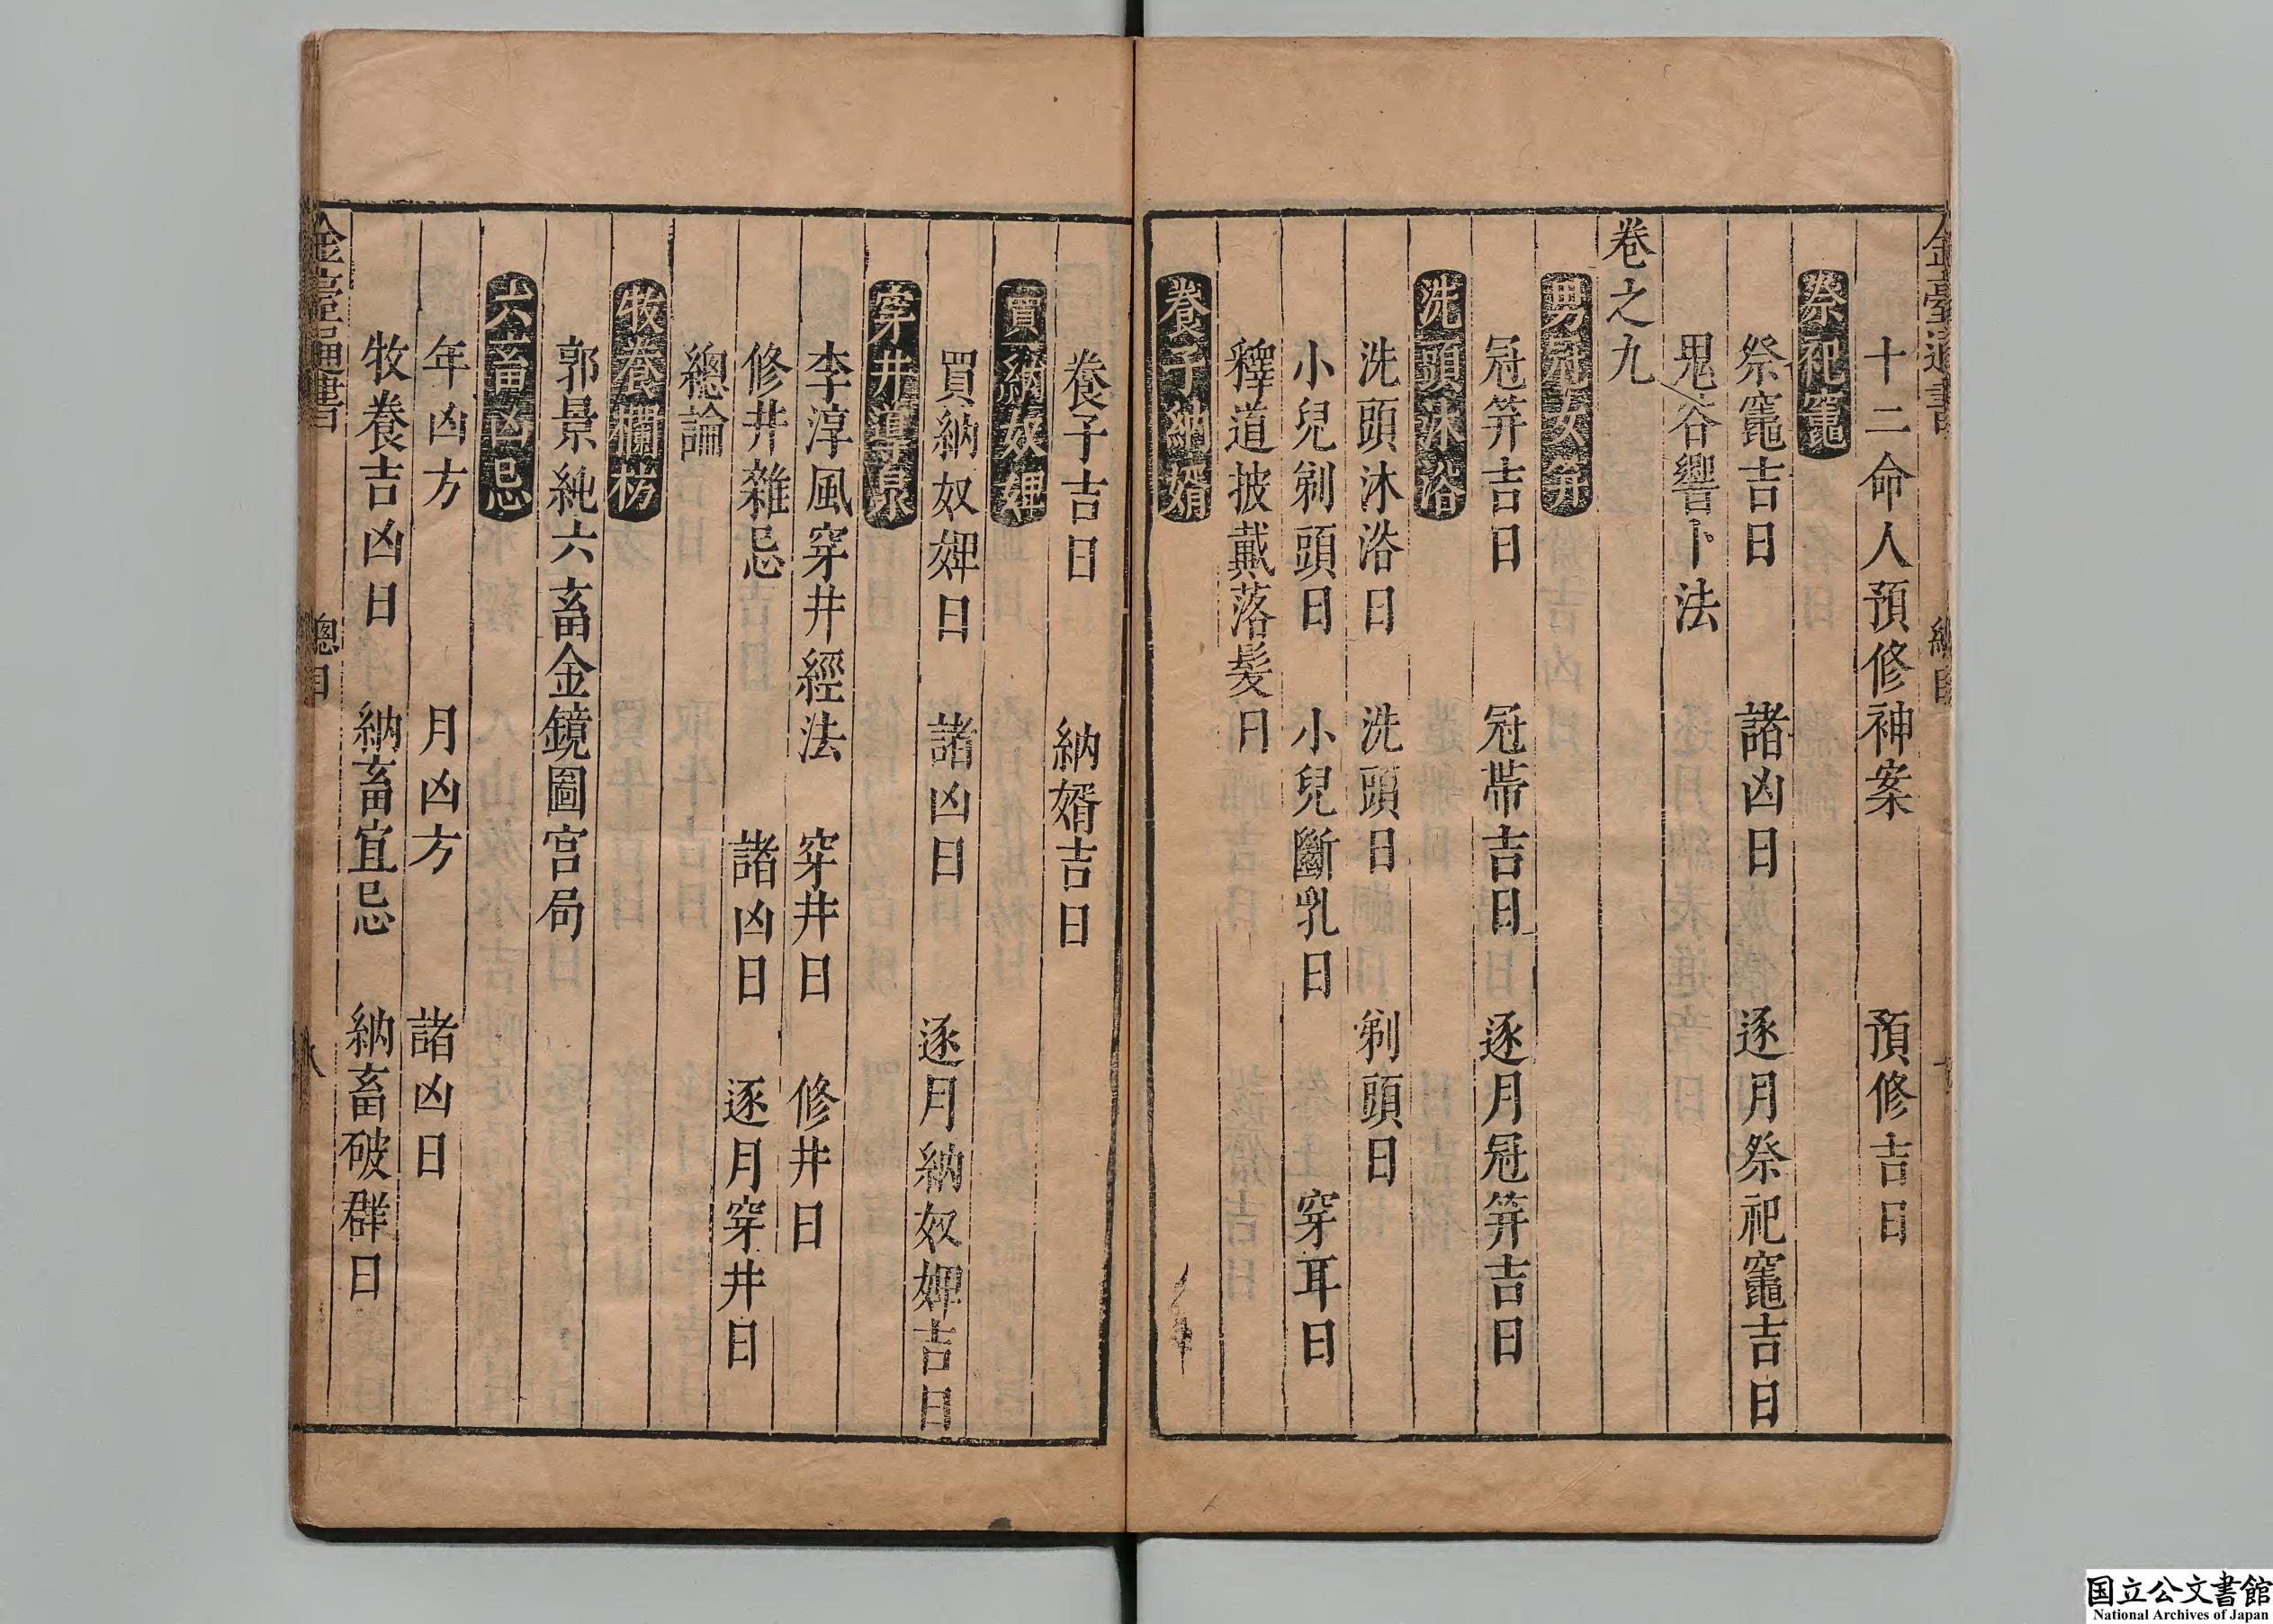 十二命人預修神案　預修吉日
祭祀竈
祭竈吉日　諸凶日　逐月祭祀竈吉日
鬼谷響卜法
卷之九
男冠女笄
冠笄吉日　冠帶吉日　逐月冠笄吉日
洗頭沐浴
洗頭沐浴日　洗頭日　剃頭日
小兒剃頭日　小兒斷乳日　穿耳日
釋道披戴落髮日
養子納婿
養子吉日　納婿吉日
買納奴婢
買納奴婢日　諸凶日　逐月納奴婢吉日
穿井導泉
李淳風穿井經法　穿井日　修井日
修井雜忌　諸凶日　逐月穿井日
總論
牧養欄枋
郭景純六畜金鏡圖宮局
六畜凶忌
年凶方　月凶方　諸凶日
牧養吉凶日　納畜宜忌　納畜破群日
金臺通書　總目　八
国立公文書館
National Archives of Japan